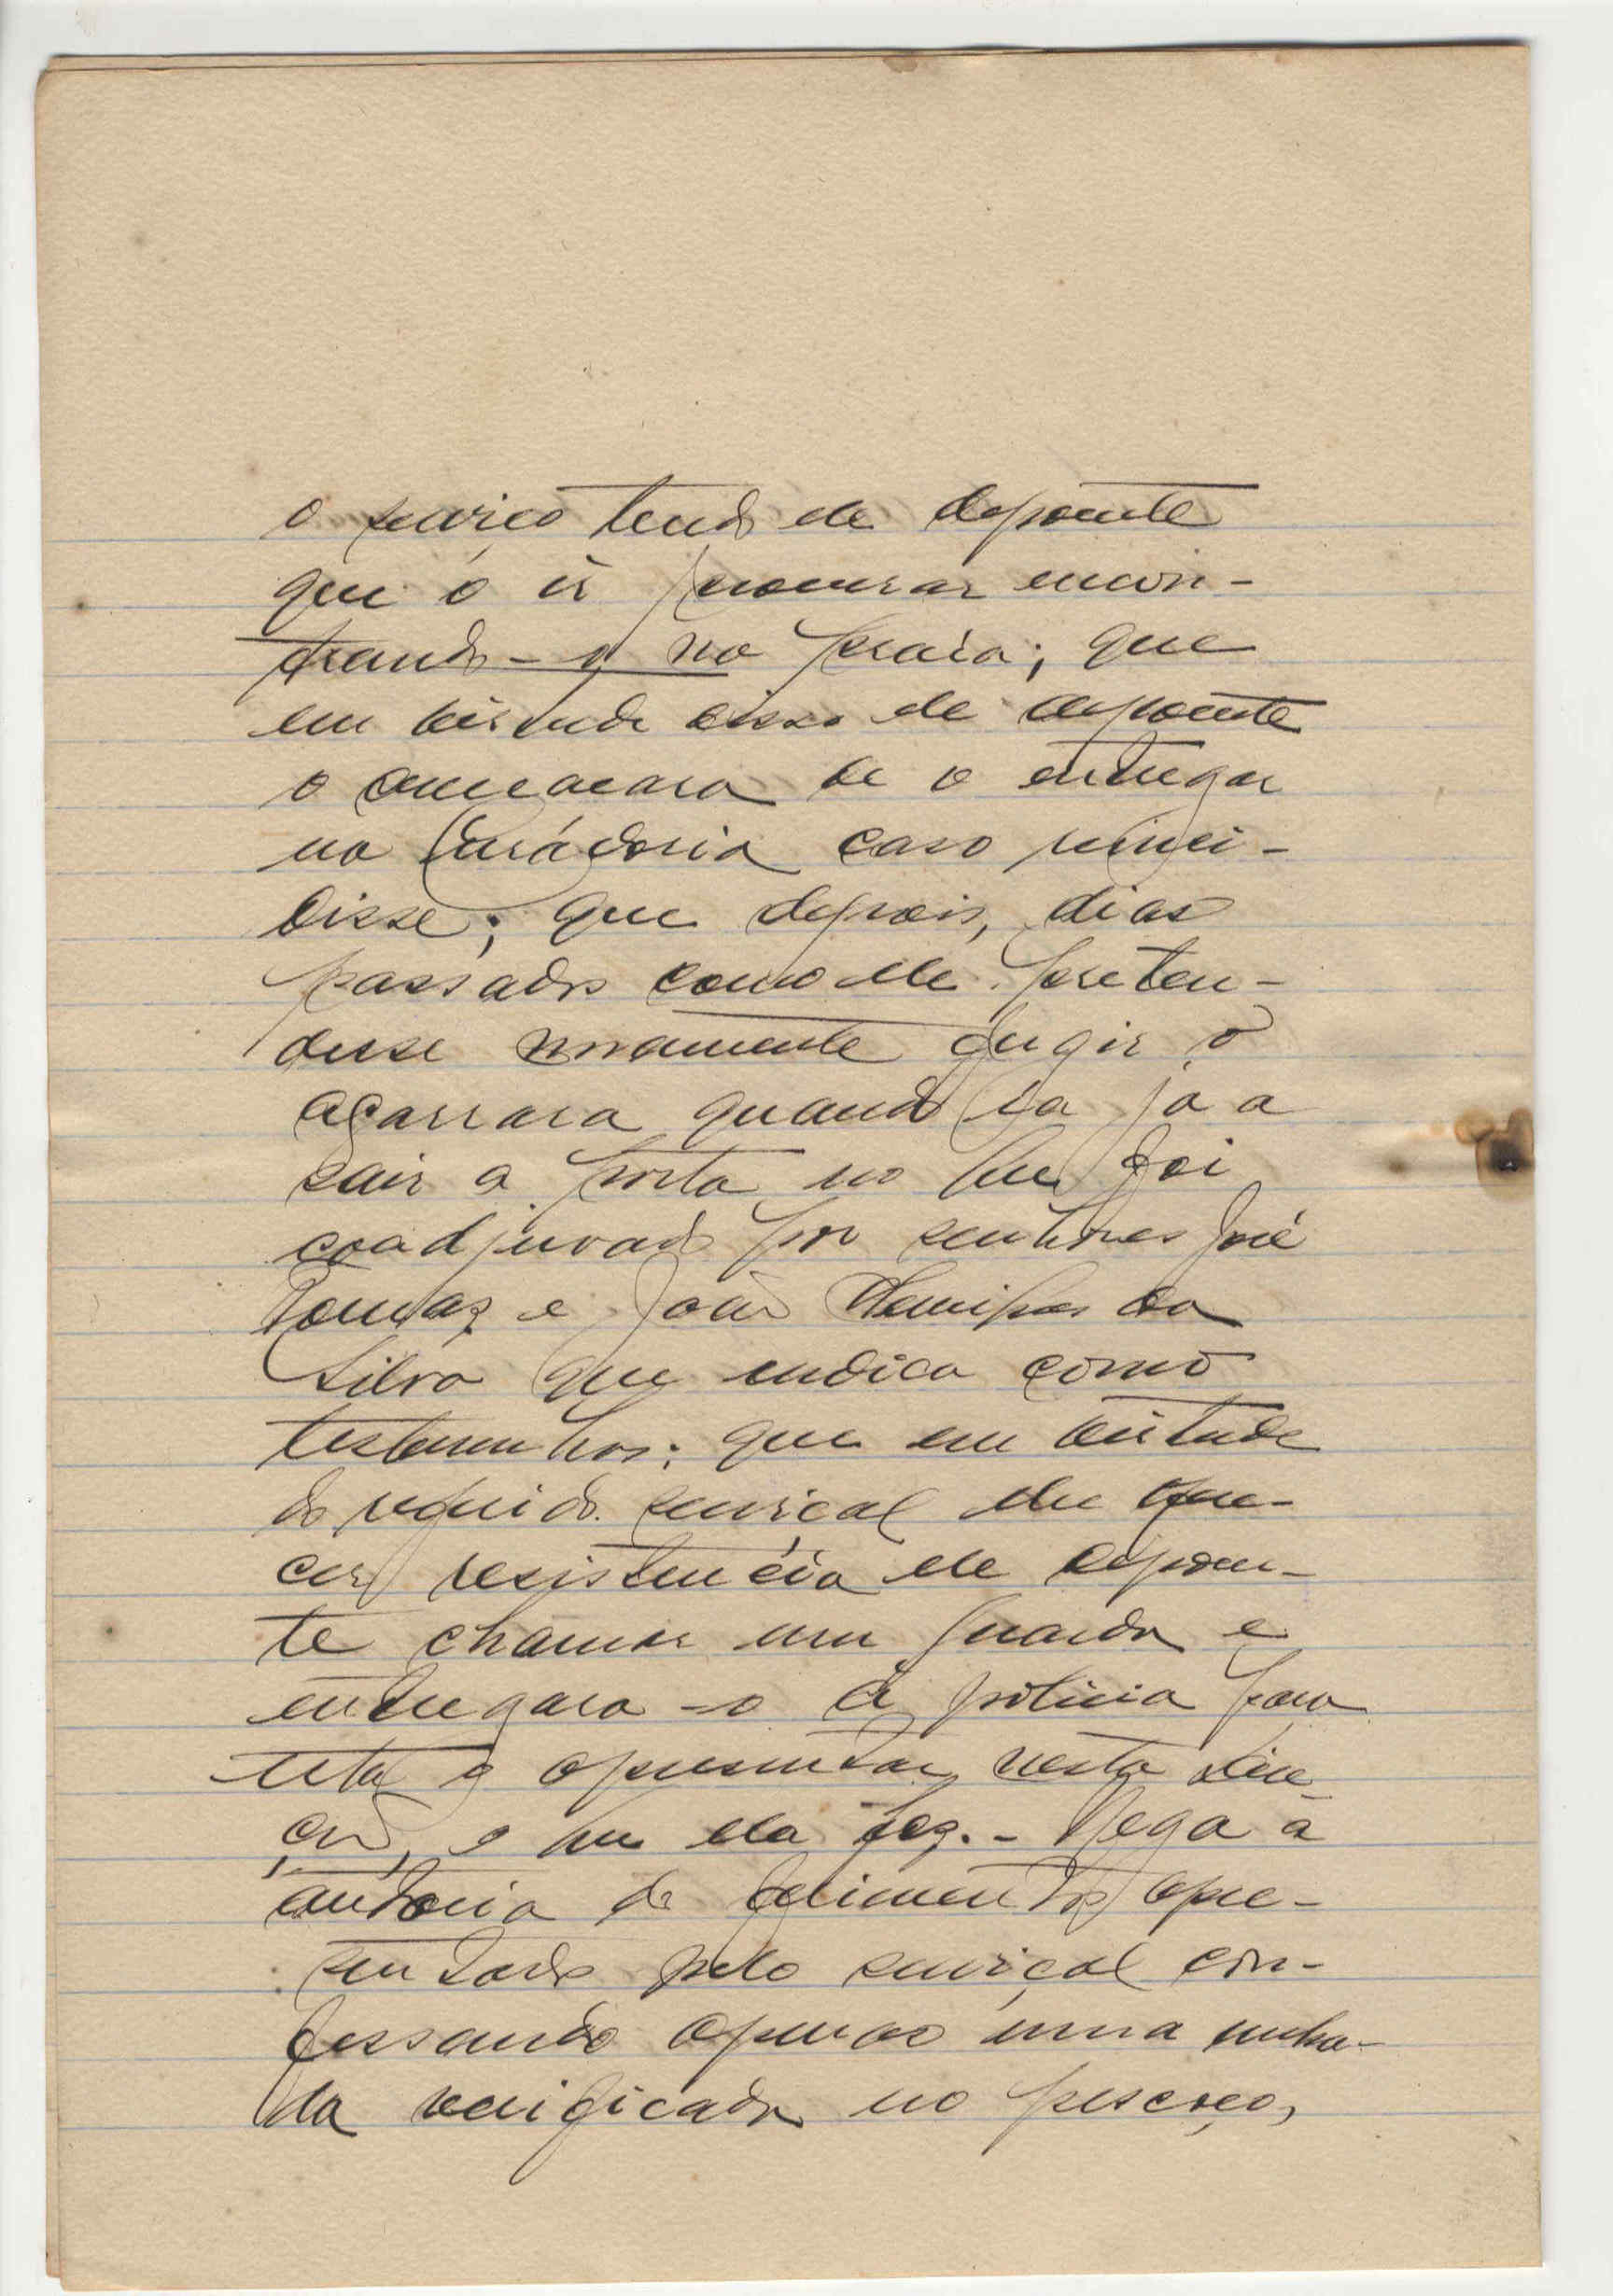 o serviço tendo ele depoente
que o ir procurar encon-
trando-o na praia; que
em virtude disso ele depoente
o ameaçara de o entregar
na Curadoria caso reinci-
disse; que depois, dias
passados como ele preten-
desse novamente fugir o
agarrara quando ia já a
sair a porta no que foi
coadjuvado por senhores José
Tomaz e João da
Silva que indica como
testemunhas; que em virtude
do referido serviçal lhe ofere-
cer resistencia ele depoen-
te chamar um guarda e
entregara-o á policia para
esta o apresentar nesta
o que ela fez.- Nega a
autoria do ferimentos apre-
sentado pelo serviçal con-
fessando apenas uma unha-
da verificada no pescoço,